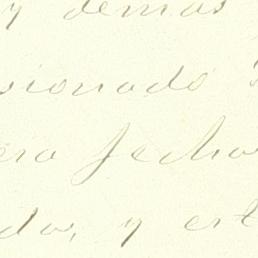 y demas
sionado
ero fecha
do, y est